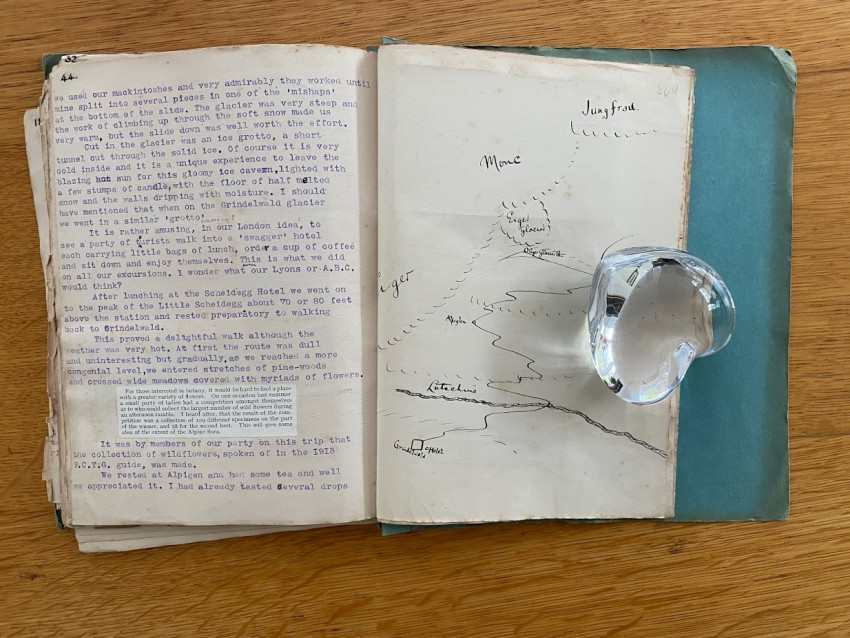 32
44.
we used our mackintoshes and very admirably they worked until
mine split into several pieces in one of the 'mishaps'
at the bottom of the slide. The glacier was very steep and
the work of climbing up through the soft snow made us
very warm, but the slide down was well worth the effort.
Cut in the glacier was an ice grotto, a short
tunnel cut through the solid ice. Of course it is very
cold inside and it is a unique experience to leave the
blazing hot sun for this gloomy ice cavern, lighted with
a few stumps of candle, with the floor of half melted
snow and the walls dripping with moisture. I should
have mentioned that when on the Grindelwald glacier
we went in a similar 'grotto'
It is rather amusing, in our London idea, to
see a party of turists walk into a 'swagger' hotel
each carrying little bags of lunch, order a cup of coffee
and sit down and enjoy themselves. This is what we did
on all our excursions. I wonder what our Lyons or A.B.C.
would think?
After lunching at the Scheidegg Hotel we went on
to the peak of the Little Scheidegg about 70 or 80 feet
above the station and rested preparatory to walking
back to Grindelwald.
This proved a delightful walk although the
weather was very hot. At first the route was dull
and uninteresting but gradually, as we reached a more
congenial level, we entered stretches of pine-woods
and crossed wide meadows covered with myriads of flowers.
For those interested in botany, it would be hard to find a place
with a greater variety of flowers. On one occasion last summer
a small party of ladies had a competition amongst themselves
as to who could collect the largest number of wild flowers during
an afternoon ramble. I heard after, that the result of the com-
petition was a collection of 109 different specimens on the part
of the winner, and 98 for the second best. This will give some
idea of the extent of the Alpine flora.
It was by members of our party on this trip that
the collection of wildflowers, spoken of in the 1913
F.C.T.G. guide, was made.
We rested at Alpigen and had some tea and well
we appreciated it. I had already tasted several drops
Jungfrau
Monc
Eiger
glacier
iger
Alpiglen
Lutschine
Grindelwald
Hotel